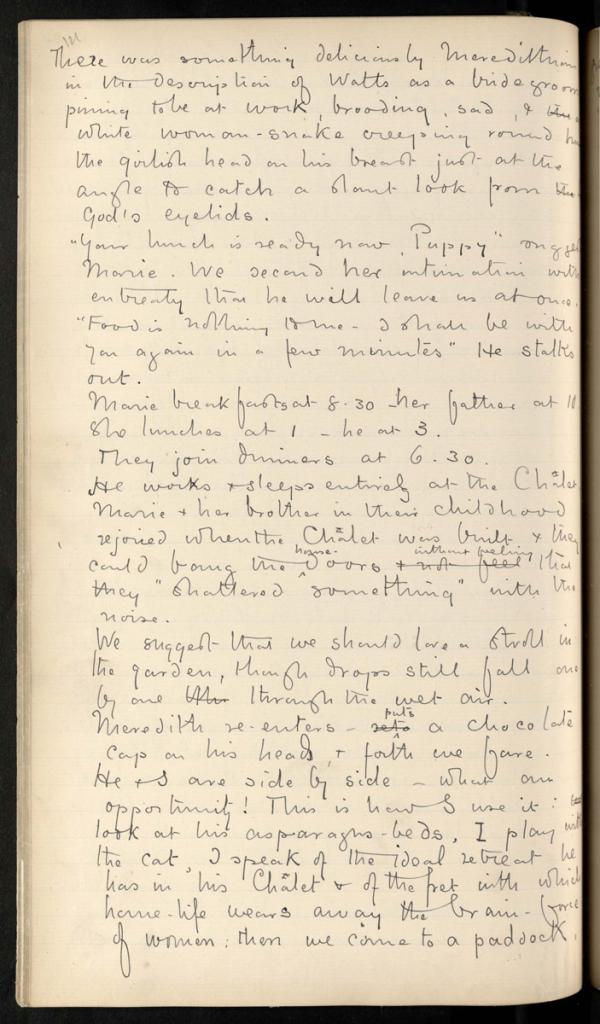 121
There was something deliciously Meredithian
in the description of Watts as a bridegroom
pining to be at work, brooding, sad, &
white woman-snake creeping round
the girlish head on his breast just at the
angle to catch a slant look from the
God's eyelids.
"Your lunch is ready now, Puppy"
Marie. We second her intimation with
entreaty that he will leave us at once.
"Food is nothing to me - I shall be with
you again in a few minutes" He stalks
out.
Marie breakfasts at 8.30 - her father at 10
She lunches at 1 - he at 3.
They join dinners at 6.30.
He works & sleeps entirely at the Châlet
Marie & her brother in their childhood
rejoiced when the Châlet was built & they
could bang the house-doors & not feel without feeling that
they "shattered something" with the
noise.
We suggest that we should love a stroll in
the garden, though drops still fall one
by one through the wet air.
Meredith re-enters - sets puts a chocolate
cap on his head, & forth we fare.
He & I are side by side - what an
opportunity! This is how I use it: I
look at his asparagus-beds, I play with
the cat, I speak of the ideal retreat he
has in his Châlet & of the fret with which
home-life wears away the brain-force
of women: then we come to a paddock,